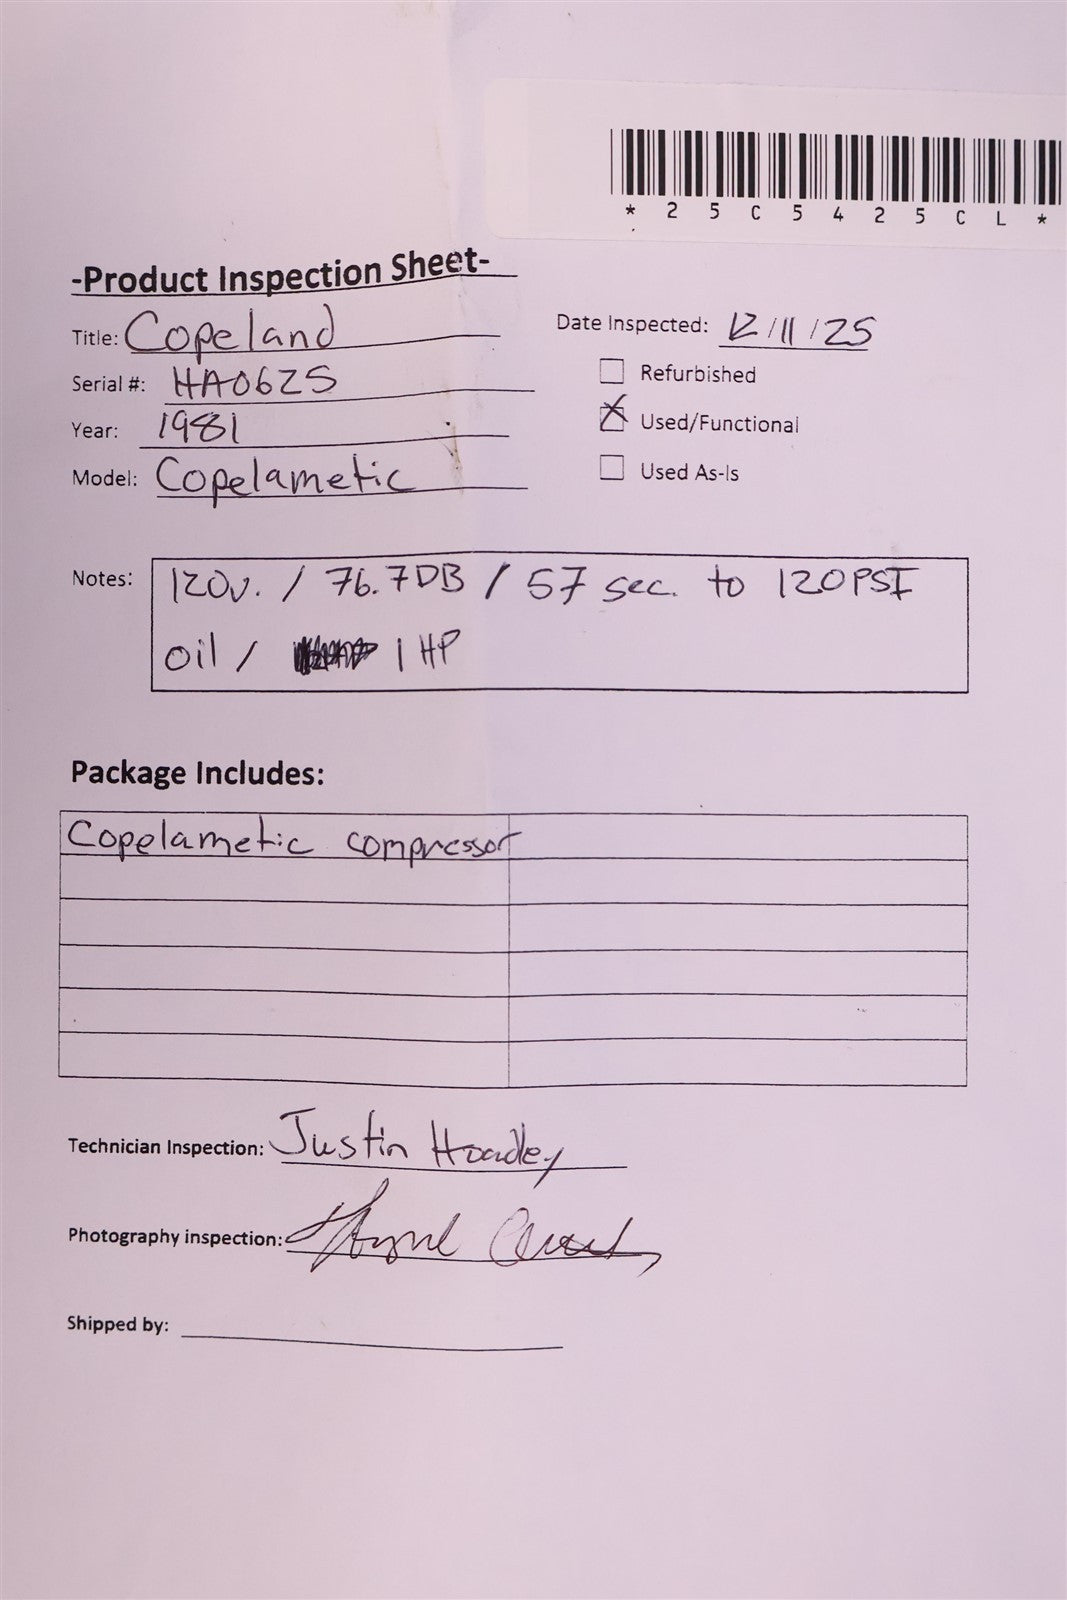 *25C5425CL*
-Product Inspection Sheet-
Title: Copeland
Date Inspected: 12/11/25
Serial #: HA0625
Refurbished
Year: 1981
Used/Functional
Model: Copelametic
Used As-Is
Notes: 120v. / 76.7DB / 57 sec. to 120PSI
oil / 1 HP
Package Includes:
Copelametic compressor
Technician Inspection: Justin Hoadley
Photography inspection:
Shipped by: